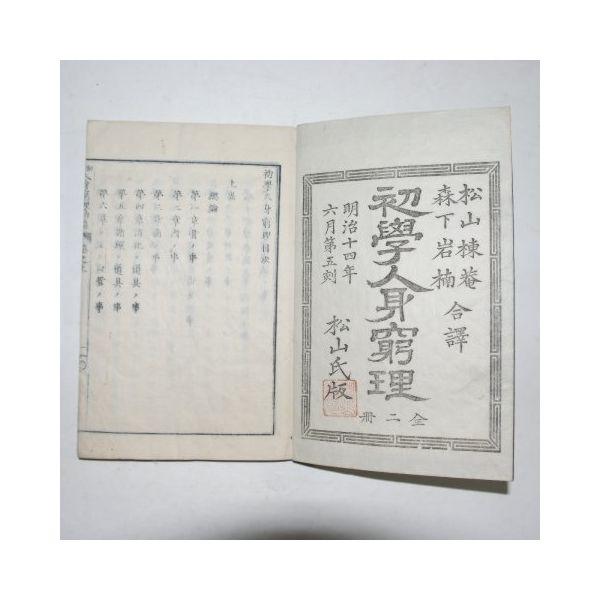 松山棟庵
森下岩楠
合譯
初學人身窮理
全二冊
明治十四年
六月第五刻
松山氏版
初學人身窮理目次
上巻
總論
第一章骨ノ事
第二章肉ノ事
第三章歯ノ事
第四章消化ノ道具ノ事